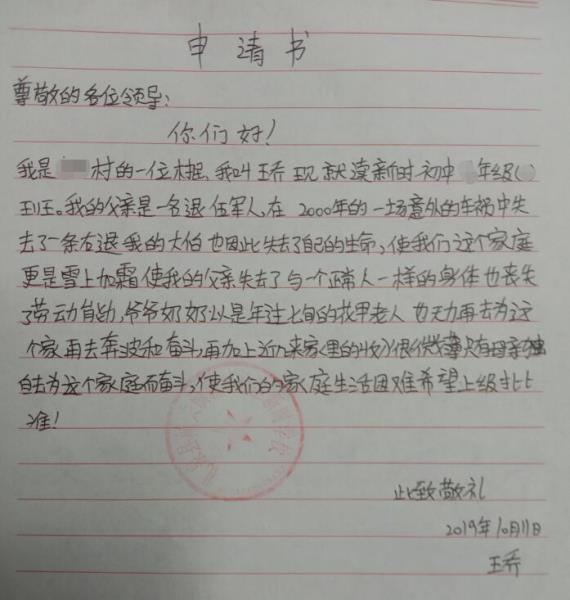 申请书
尊敬的各位领导:
你们好!
我是 村的一位村民,我叫王乔 现就读新时初中 年级( )
班。我的父亲是一名退伍军人,在2000年的一场意外的车祸中失
去了一条右退 我的大伯也因此失去了自己的生命,使我们这个家庭
更是雪上加霜 使我的父亲失去了与一个正常人一样的身体 也丧失
了劳动能力,爷爷奶奶以是年过七旬的花甲老人 也无力再去为这
个家再去奔波和奋斗,再加上近几年来家里的收入很微薄只有母亲独
自去为这个家庭而奋斗,使我们的家庭生活困难希望上级批
准!
此致敬礼
2019年10月11日
王乔